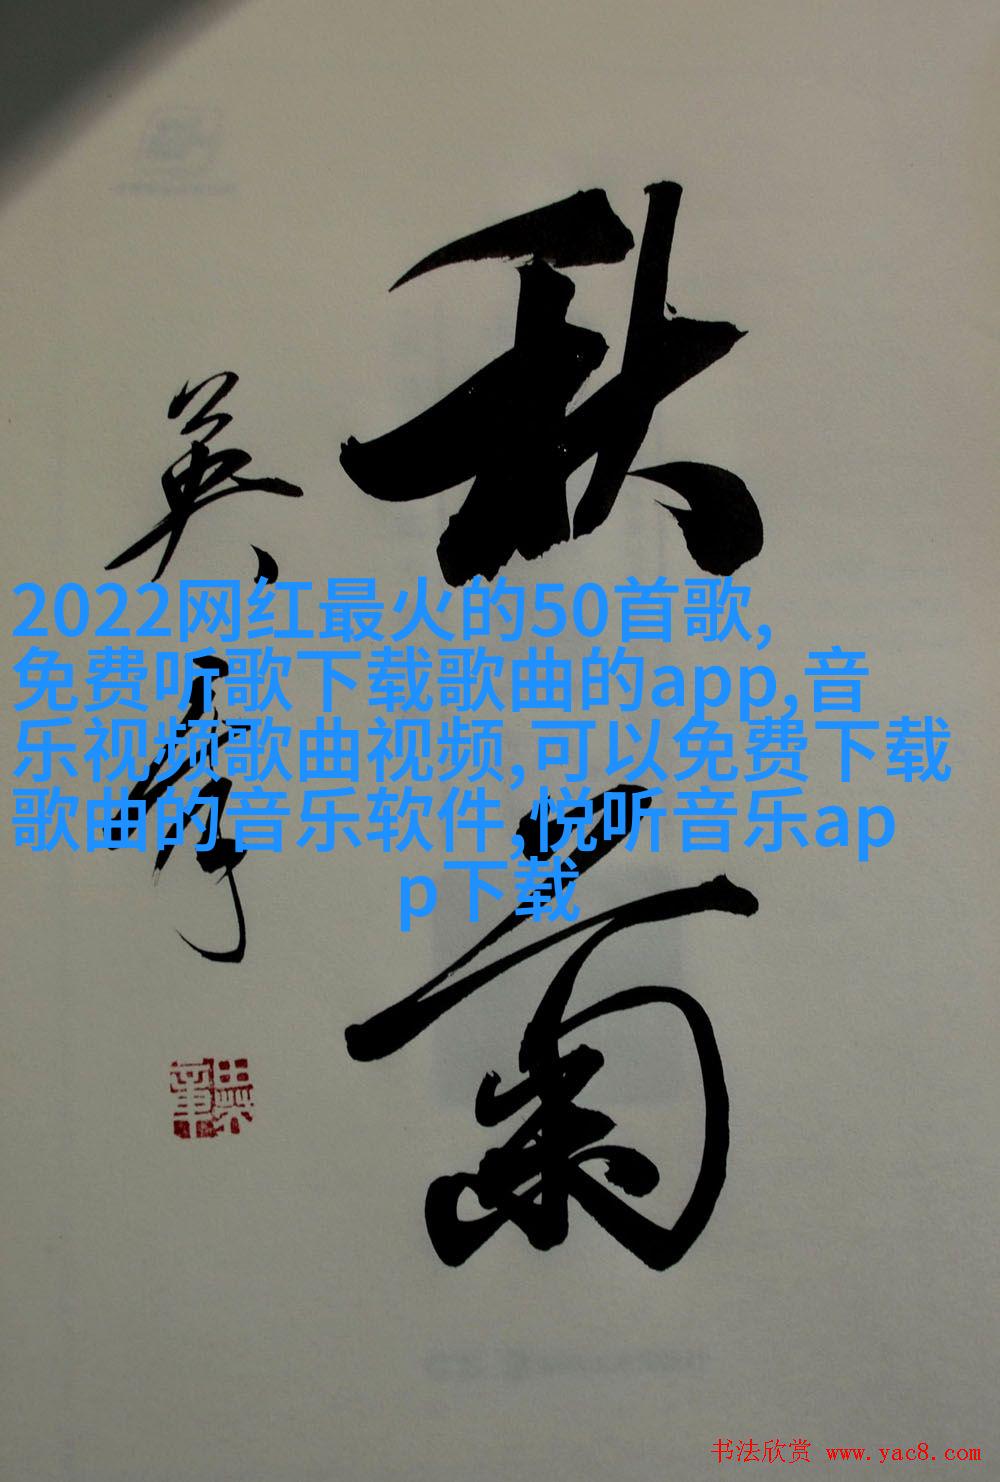 秋
菊
英
2022网红最火的50首歌,
免费听歌下载歌曲的app,音
乐视频歌曲视频,可以免费下载
歌曲的音乐软件,悦听音乐ap
p下载
书法欣赏 www.yac8.com